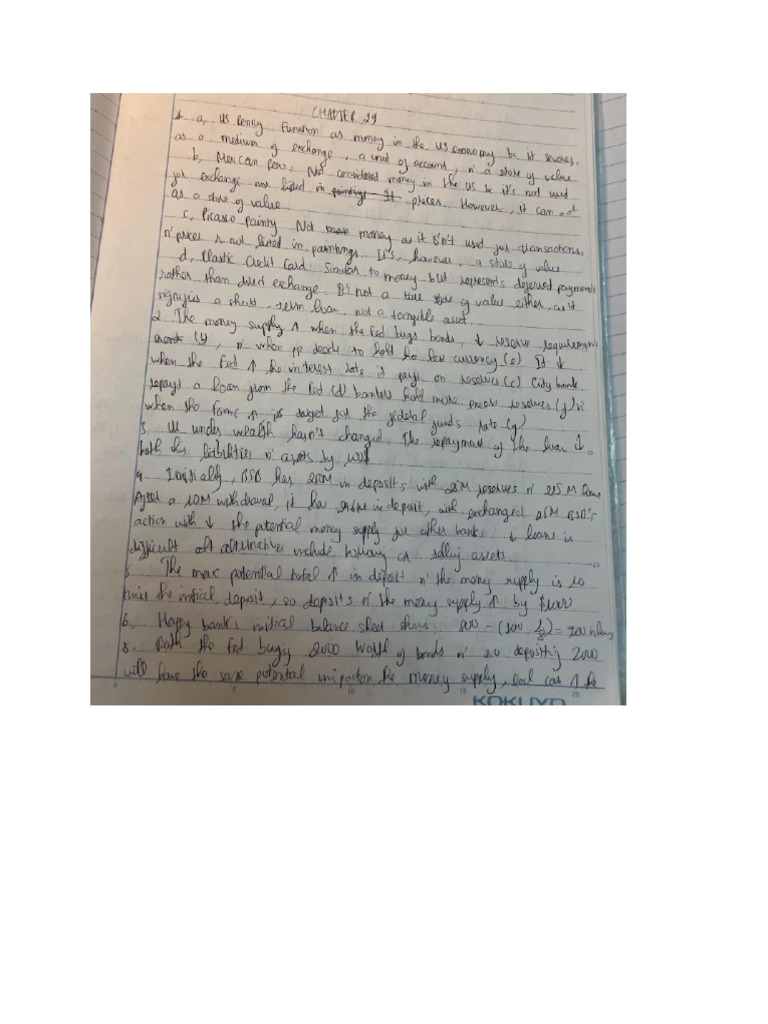 CHAPTER 29
1. a, US Penny Function as money in the US economy bc it serves
as a medium of exchange, a unit of account, n' a store of value
b, Mexican Peso: Not considered money in the US bc it's not used
for exchange nor listed in paintings It prices. However, it can act
as a store of value
c, Picasso painty: Not money as it isn't used for transactions
n' prices r not listed in paintings. It's, however, a store of value
d, Plastic Credit Card: Similar to money but represents deferred payments
rather than direct exchange. It's not a true store of value either, as it
signifies a short-term loan, not a tangible asset.
2. The money supply ↑ when the Fed buys bonds, ↓ reserve requirement
n' when pp decide to hold the few currency (e) It ↓
when the Fed ↑ the interest rate it pays on reserves (c) City bank
repays a loan from the Fed (d) bankers hold more excess reserves (f) n'
when the FOMC ↑ its target for the federal funds rate (g)
3. under wealth hasn't changed. The repayment of the loan ↓
both his liabilities n' assets by
4. Initially, BSB has 250M in deposits with 25M reserves n' 225M
After a 10M withdrawal, it has in deposit, with 25M BSB's
action with ↓ the potential money supply for other banks. ↓ loans is
difficult alternatives include borrowing or selling assets
5. The max potential total ↑ in deposit n' the money supply is 10
times the initial deposit, so deposits n' the money supply ↑ by
6. Happy bank's initial balance sheet shows:
8. Both the Fed buyg 2000 worth of bonds n' so depositig 2000
will have the same potential impact on the money supply, can ↑ the
KOKUYO